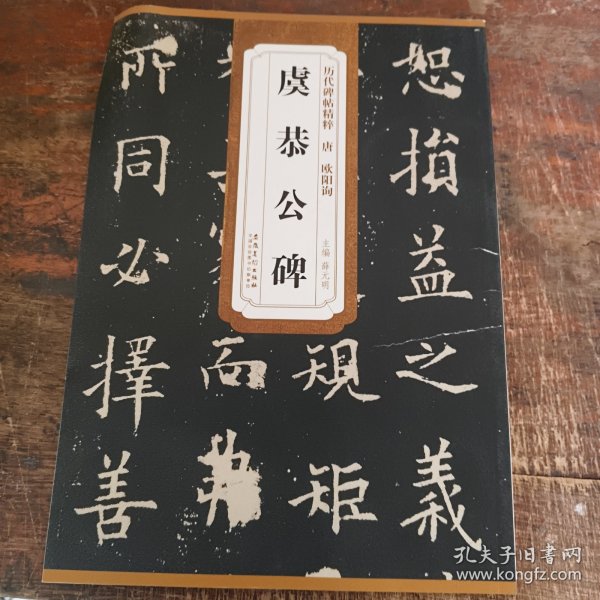 历代碑帖精粹 唐 欧阳询
虞恭公碑
主编 薛元明
安徽美术出版社
恕损益之義
規矩
而
所同必擇善
孔夫子旧书网
www.kongfz.com